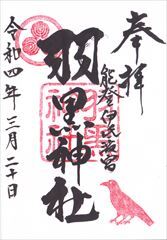 奉拝
能登伊氏波宮
羽黒神社
令和四年三月二十日